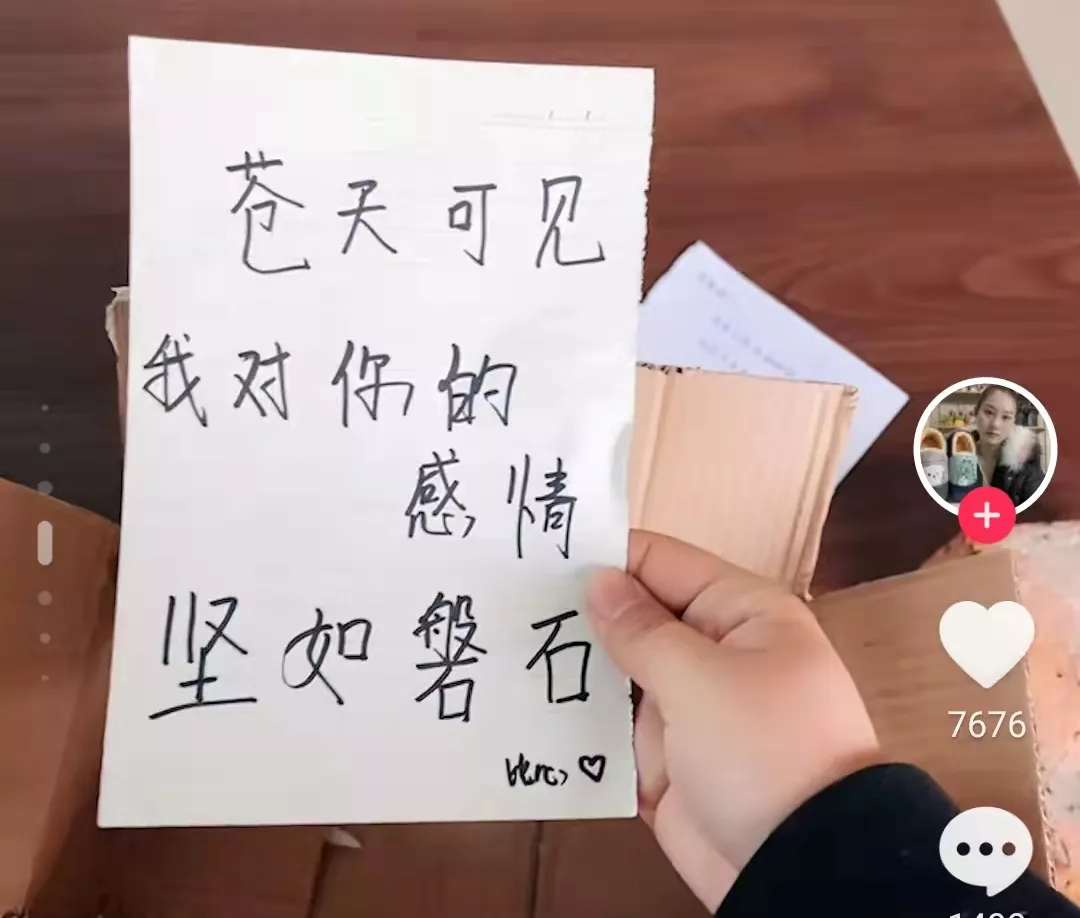 苍天可见
我对你的
感情
坚如磐石
7676